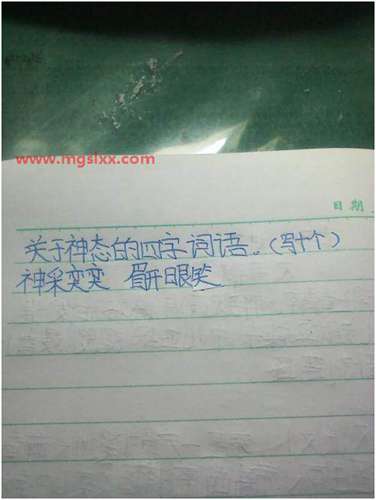 www.mgslxx.com
日期
关于神态的四字词语。(写十个)
神采变变 眉开眼笑